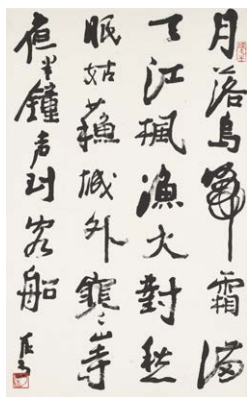 月落烏啼霜滿
天江楓漁火對愁
眠姑蘇城外寒山寺
夜半鐘声到客船